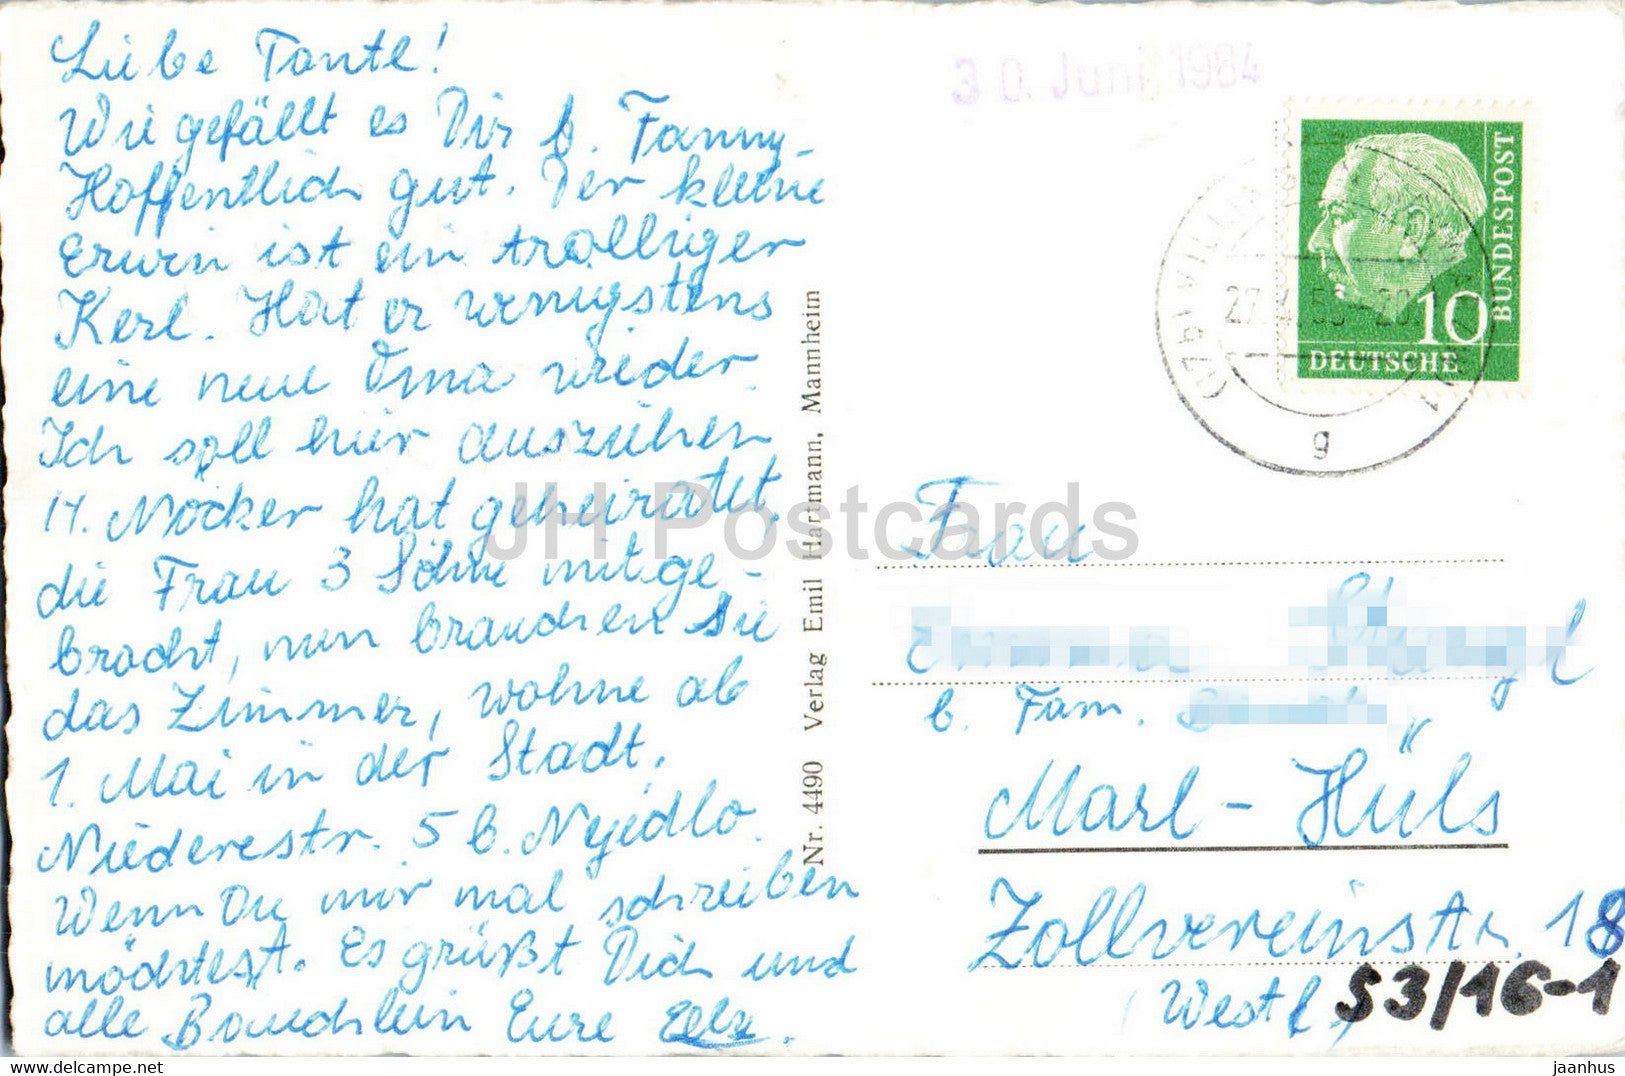 Liebe Tante!
Wie gefällt es Dir b. Fanny.
Hoffentlich gut. Der kleine
Erwin ist ein trolliger
Kerl. Hat er wenigstens
eine neue Oma wieder.
Ich soll hier ausziehen
H. Möcker hat geheiratet,
die Frau 3 Söhne mitge-
bracht, nun brauchen Sie
das Zimmer, wohne ab
1. Mai in der Stadt,
Niederestr. 5 b. Nejedlo.
Wenn Du mir mal schreiben
möchtest. Es grüßt Dich und
alle Eure Else.
Nr. 4490 Verlag Emil Hartmann, Mannheim
30. Juni 1984
10
DEUTSCHE
BUNDESPOST
g
JH Postcards
Frau
b. Fam.
Marl-Hüls
Zollvereinstr. 18
(Westf.)
S3/16-1
jaanhus
www.delcampe.net